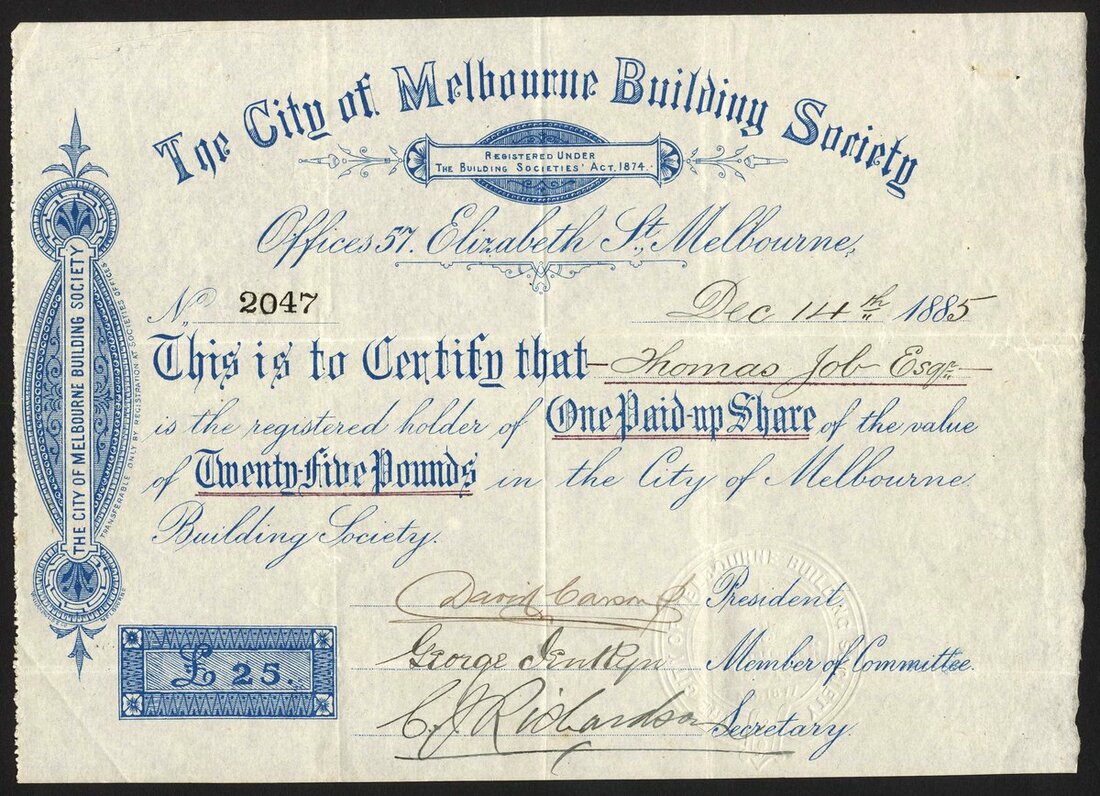 The City of Melbourne Building Society
REGISTERED UNDER
THE BUILDING SOCIETIES' ACT. 1874.
Offices 57. Elizabeth St., Melbourne,
No. 2047
Dec 14th 1885
This is to Certify that Thomas Job Esqr
is the registered holder of One Paid-up Share of the value
of Twenty-Five Pounds in the City of Melbourne
Building Society.
David Carson President,
George Jenkyn Member of Committee.
C J Richardson Secretary.
£ 25.
THE CITY OF MELBOURNE BUILDING SOCIETY
TRANSFERABLE ONLY BY REGISTRATION AT SOCIETIES OFFICES
MELBOURNE BUILDING SOCIETY